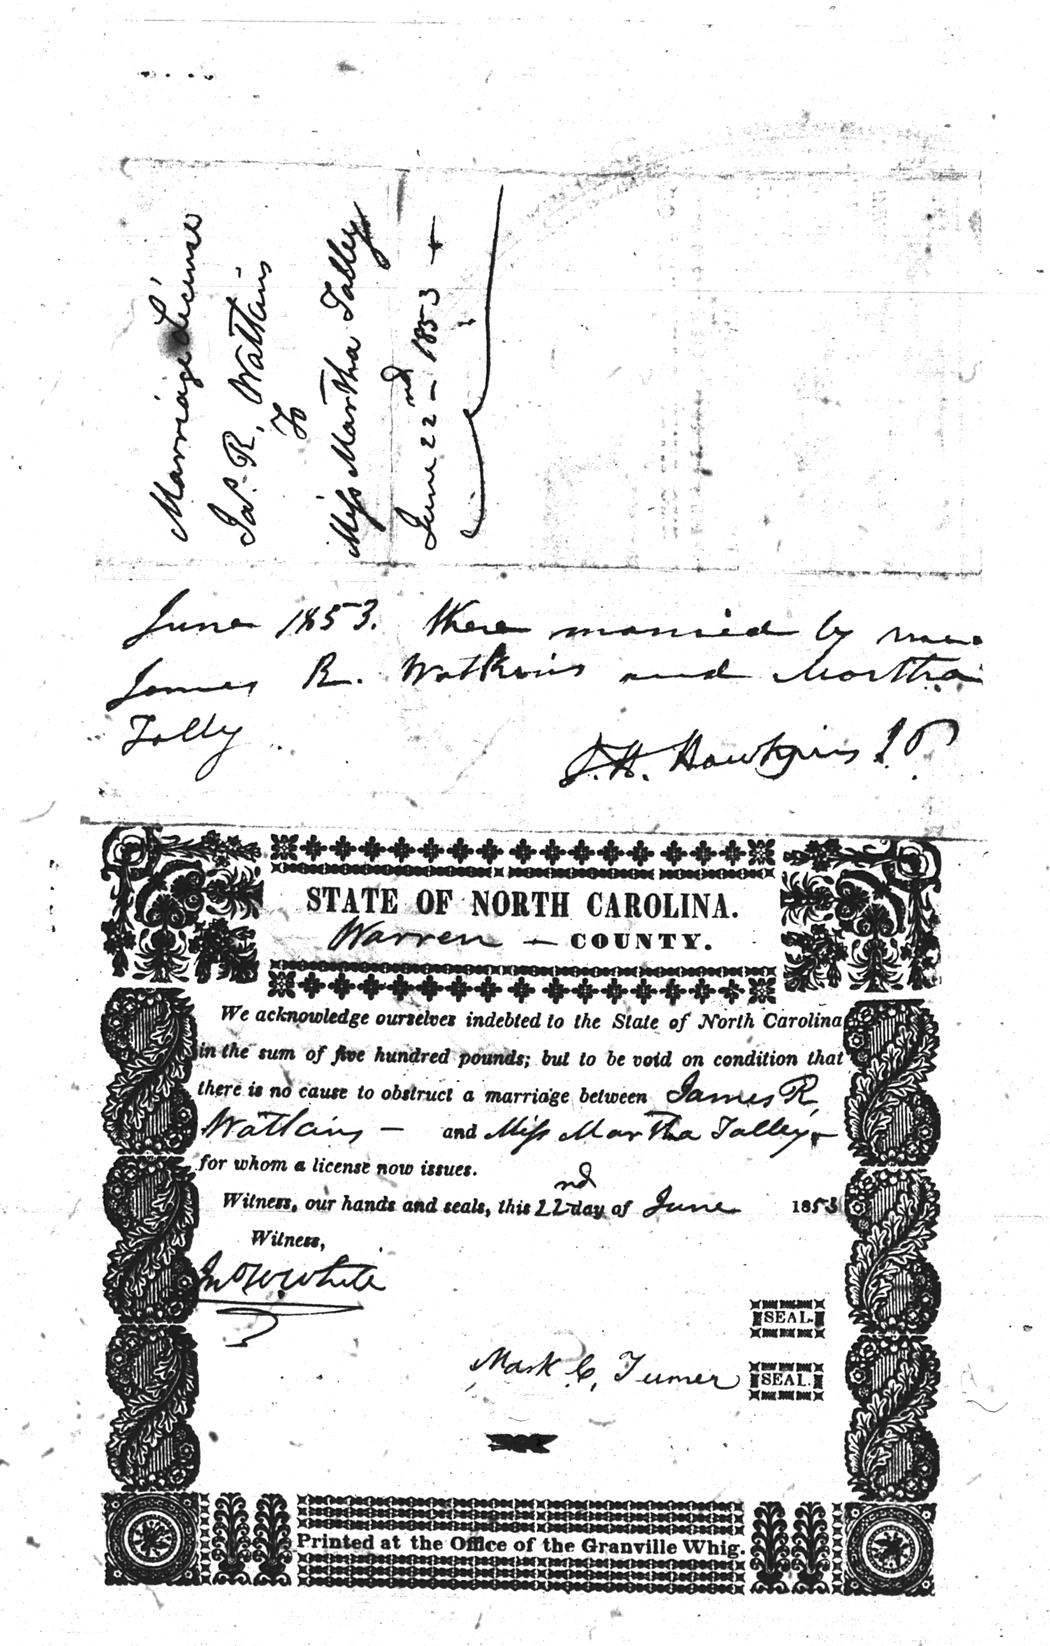 Marriage License
Jas. R. Watkins
To
Miss Martha Talley
June 22nd – 1853
June 1853. there married by me
James R. Watkins and Martha
Tally
J. H. Hawkins J P
STATE OF NORTH CAROLINA.
Warren – COUNTY.
We acknowledge ourselves indebted to the State of North Carolina
in the sum of five hundred pounds; but to be void on condition that
there is no cause to obstruct a marriage between James R.
Watkins – and Miss Martha Talley
for whom a license now issues.
Witness, our hands and seals, this 22nd day of June 1853
Witness,
Jno W. White
SEAL.
Mark C. Turner SEAL.
Printed at the Office of the Granville Whig.